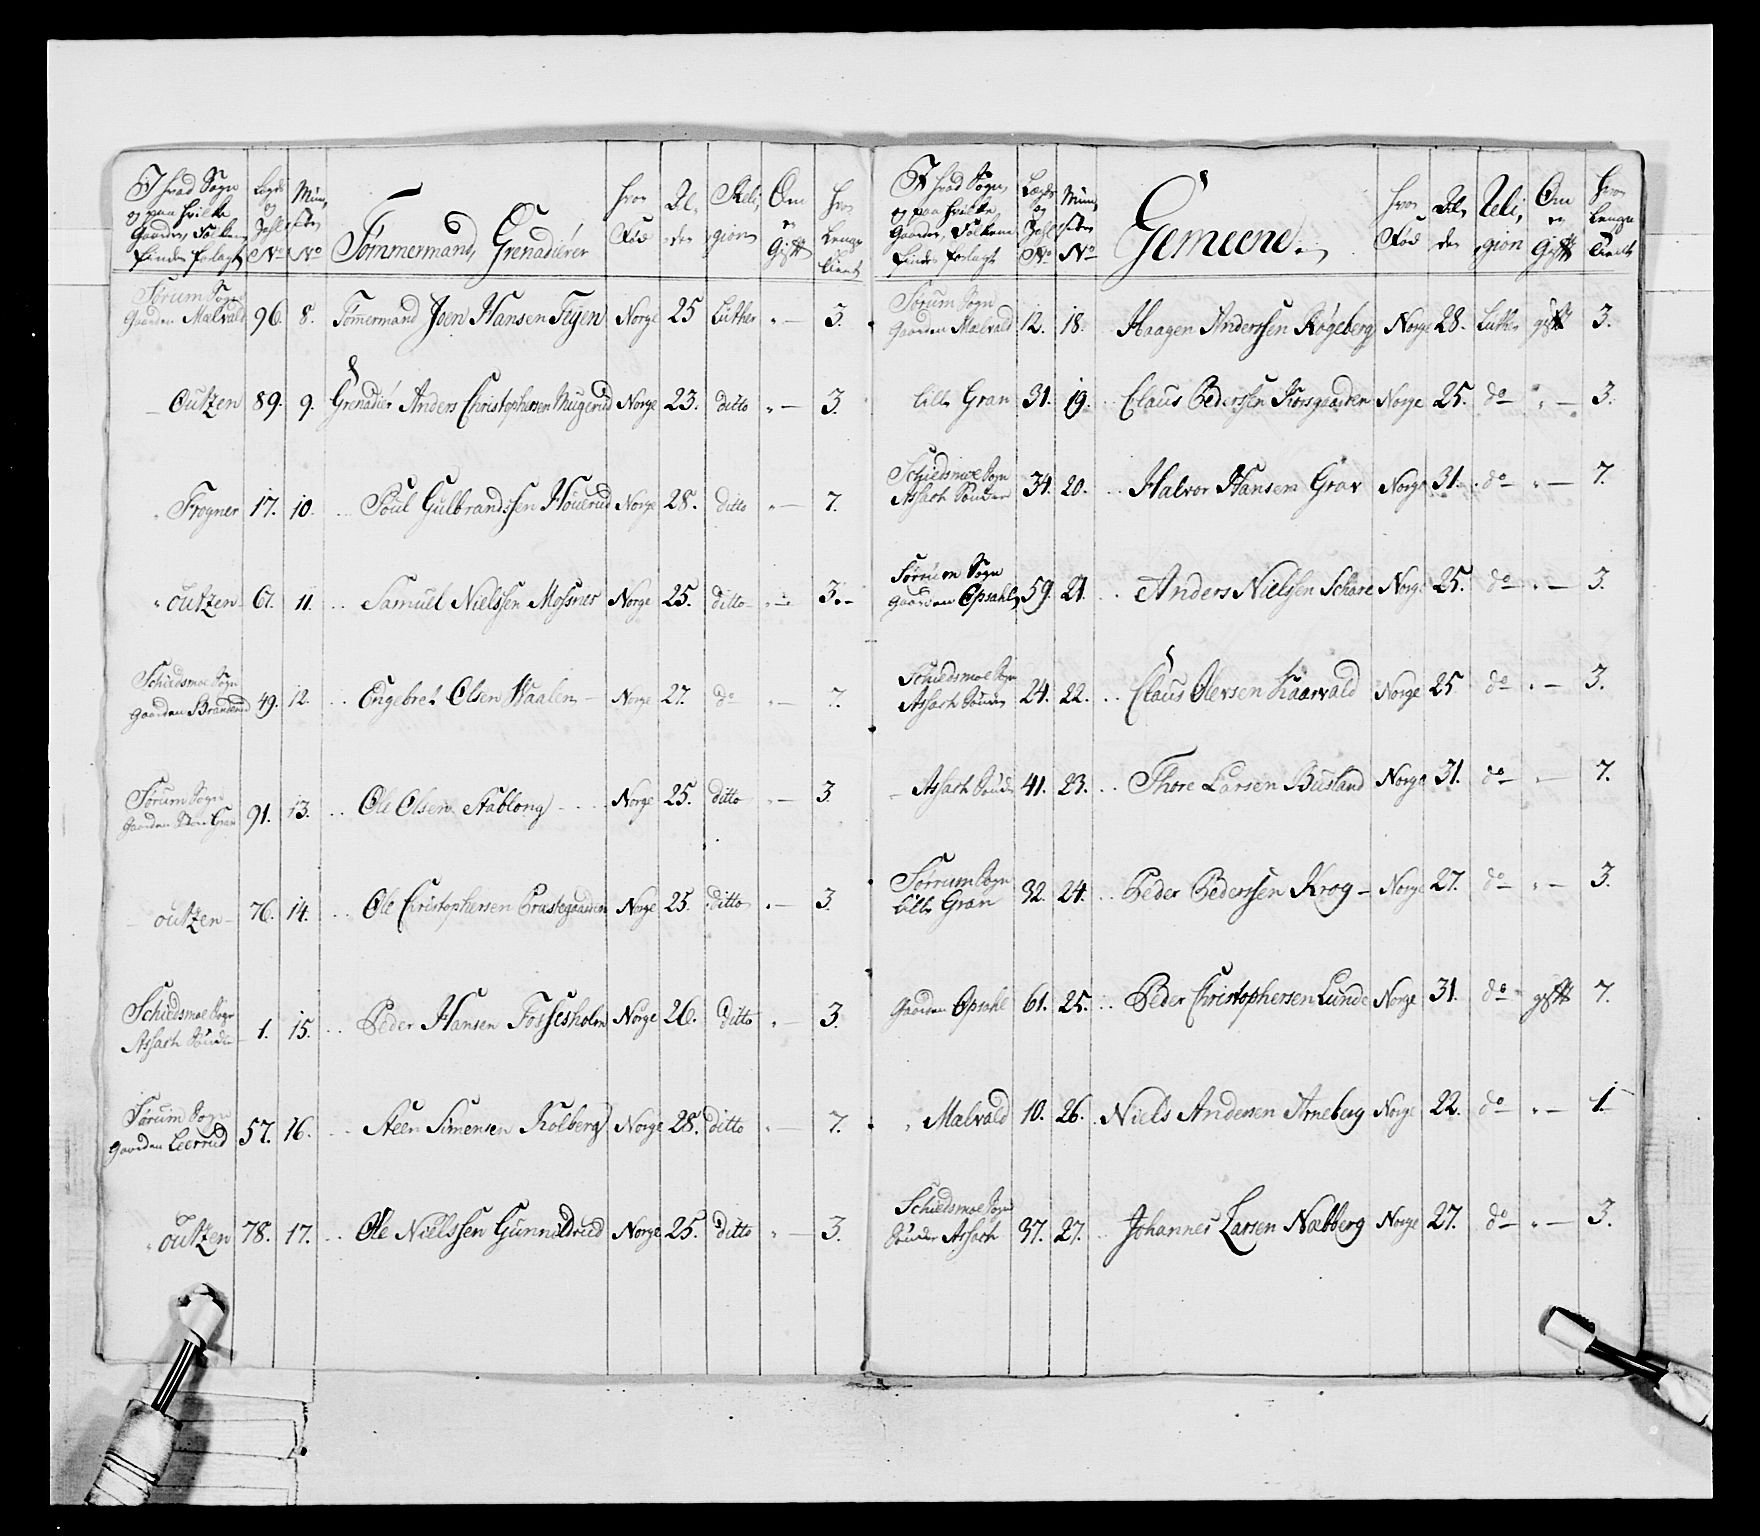 I hvad Sogn og paa hvilke Gaarder, Folkene findes forlagt | Lægds og No | Mün, ster No | Tømmermand, Grenadierer | hvor Fød | Al, der | Reli, gion | Om er Gift | hvor Længe tient
Sørum Sogn
Gaarden Malvald 96. 8. Tømermand Joen Hansen Fejen Norge 25 Luther „ — 3.
— Outzen 89. 9. Grenadier Anders Christophersen Mugerud Norge 23. ditto „ — 3.
„ Frogner 17. 10. Poul Gulbrandssen Houerud Norge 28. ditto „ — 7.
„ outzen 67. 11. Samuel Nielssen Mossnes Norge 25. ditto „ — 3.
Schiedsmoe Sogn
Gaarden Branderud 49. 12. Engebret Olsen Waalen — Norge 27. do „ — 7.
Sørum Sogn
Gaarden Gran 91. 13. Ole Olsen Stablong Norge 25. ditto „ — 3
— outzen — 76. 14. Ole Christophersen Prestegaarden Norge 25. ditto „ — 3.
Schiedsmoe Sogn
Assach Sönder 1. 15. Peder Hansen Fossesholm Norge 26. ditto „ — 3.
Sørum Sogn
Gaarden Leerrud 57. 16. Steen Simensen Kolberg Norge 28. ditto „ — 7.
„ outzen 78. 17. Ole Nielssen Gunnildrud Norge 25. ditto „ — 3.
I hvad Sogn, og paa hvilke Gaarder, Folkene findes forlagt | Lægds og No | Mün, ster No | Gemeene. | hvor Fød | Al, der | Reli, gion | Om er Gift | hvor Længe tient
Sørum Sogn
Gaarden Malvald 12. 18. Haagen Anderssen Røgeberg Norge 28. Luther gift 3.
Lille Gran 31. 19. Claus Pederssen Korsgaarden Norge 25. do „ — 3.
Schiedsmoe Sogn
Assach Sönder 34. 20. Halvor Hansen Grav Norge 31. do „ — 7.
Sørum Sogn
Gaarden Opsahl 59. 21. Anders Nielsen Schare Norge 25. do „ — 3.
Schiedsmoe Sogn
Assach Sönder 24. 22. Claus Olersen Kaarvald Norge 25 do „ — 3.
— Assach Sönder 41. 23. Thore Larsen Busland Norge 31. do — 7.
Sørrum Sogn
Lille Gran 32. 24. Peder Pederssen Krog — Norge 27. do „ — 3.
Gaarden Opsahl 61. 25. Peder Christophersen Lunde Norge 31. do gift 7.
„ Malvald 10. 26. Niels Andersen Arneberg Norge 22. do „ — 1.
Schiedsmoe Sogn
Sönder Assach 37. 27. Johannes Larsen Næbberg Norge 27. do „ — 3.